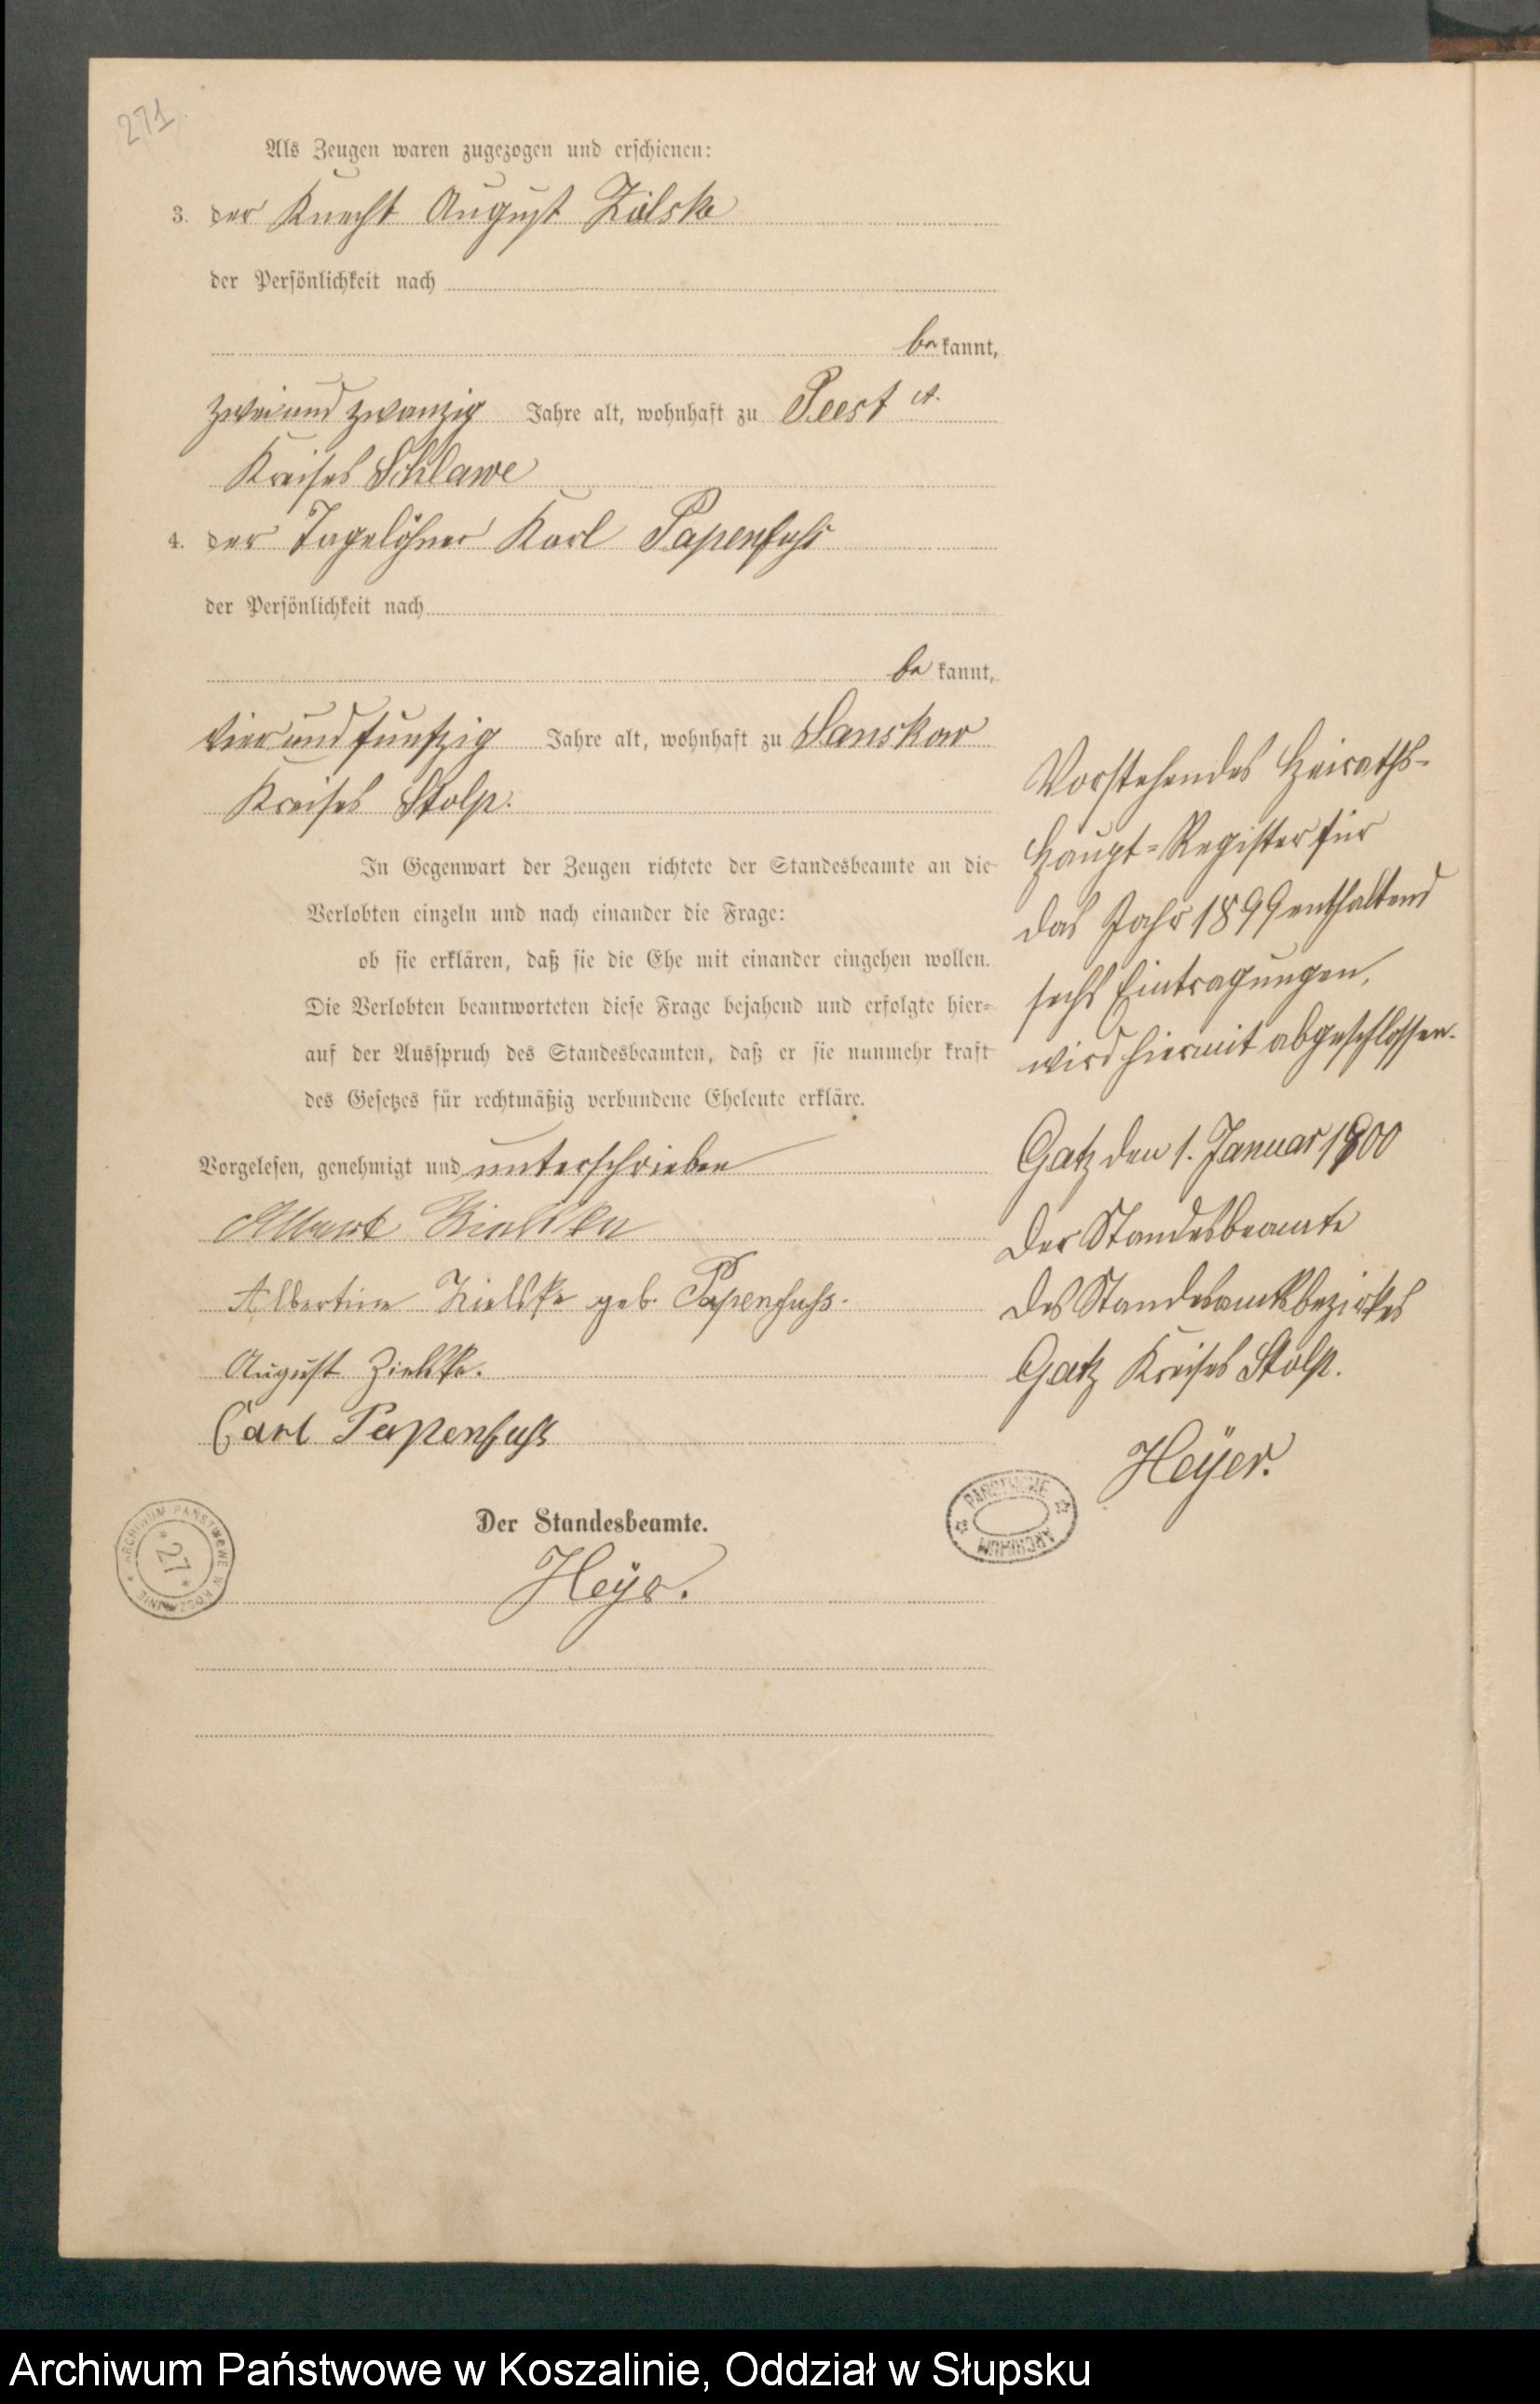 271.
Als Zeugen waren zugezogen und erschienen:
3. der Knecht August Zilske
der Persönlichkeit nach
bekannt,
zwei und zwanzig Jahre alt, wohnhaft zu Peest A.
Kreises Schlawe
4. der Tagelöhner Karl Papenfuß
der Persönlichkeit nach
be kannt,
vier und funfzig Jahre alt, wohnhaft zu Sanskow
Kreises Stolp.
In Gegenwart der Zeugen richtete der Standesbeamte an die
Verlobten einzeln und nach einander die Frage:
ob sie erklären, daß sie die Ehe mit einander eingehen wollen.
Die Verlobten beantworteten diese Frage bejahend und erfolgte hier=
auf der Ausspruch des Standesbeamten, daß er sie nunmehr kraft
des Gesetzes für rechtmäßig verbundene Eheleute erkläre.
Vorgelesen, genehmigt und unterschrieben
Albert Zielske
Albertine Zielske geb. Papenfuhs.
August Zielske.
Carl Papenfuhs
Der Standesbeamte.
Heyer.
Vorstehendes Heiraths-
Haupt=Register für
das Jahr 1899 enthaltend
sechs Eintragungen,
wird hiermit abgeschlossen.
Gatz den 1. Januar 1900
Der Standesbeamte
des Standesamtsbezirkes
Gatz Kreises Stolp.
Heÿer.
ARCHIWUM PAŃSTWOWE W KOSZALINIE
* 27 *
PAŃSTWOWE ARCHIWUM
Archiwum Państwowe w Koszalinie, Oddział w Słupsku